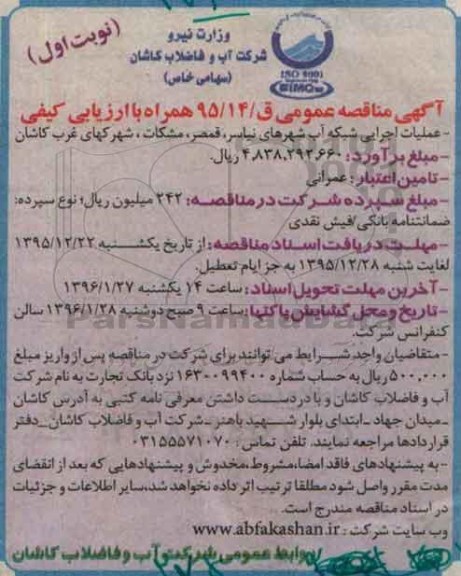 (نوبت اول)
وزارت نیرو
شرکت آب و فاضلاب کاشان
(سهامی خاص)
ISO 9001
آگهی مناقصه عمومی ق/۹۵/۱۴ همراه با ارزیابی کیفی
- عملیات اجرایی شبکه آب شهرهای نیاسر، قمصر، مشکات، شهرکهای غرب کاشان
- مبلغ برآورد: ۴,۸۳۸,۲۹۲,۶۶۰ ریال.
- تامین اعتبار: عمرانی
- مبلغ سپرده شرکت در مناقصه: ۲۴۲ میلیون ریال؛ نوع سپرده:
ضمانتنامه بانکی/فیش نقدی
- مهلت دریافت اسناد مناقصه: از تاریخ یکشنبه ۱۳۹۵/۱۲/۲۲
لغایت شنبه ۱۳۹۵/۱۲/۲۸ به جز ایام تعطیل.
- آخرین مهلت تحویل اسناد: ساعت ۱۴ یکشنبه ۱۳۹۶/۱/۲۷
- تاریخ و محل گشایش پاکتها: ساعت ۹ صبح دوشنبه ۱۳۹۶/۱/۲۸ سالن
کنفرانس شرکت.
- متقاضیان واجد شرایط می توانند برای شرکت در مناقصه پس از واریز مبلغ
۵۰۰,۰۰۰ ریال به حساب شماره ۱۶۳۰۰۹۹۴۰۰ نزد بانک تجارت به نام شرکت
آب و فاضلاب کاشان و با در دست داشتن معرفی نامه کتبی به آدرس کاشان
-میدان جهاد -ابتدای بلوار شهید باهنر -شرکت آب و فاضلاب کاشان -دفتر
قراردادها مراجعه نمایند. تلفن تماس: ۰۳۱۵۵۵۷۱۰۷۰
- به پیشنهادهای فاقد امضا، مشروط، مخدوش و پیشنهادهایی که بعد از انقضای
مدت مقرر واصل شود مطلقا ترتیب اثر داده نخواهد شد، سایر اطلاعات و جزئیات
در اسناد مناقصه مندرج است.
وب سایت شرکت: www.abfakashan.ir
روابط عمومی شرکت آب و فاضلاب کاشان